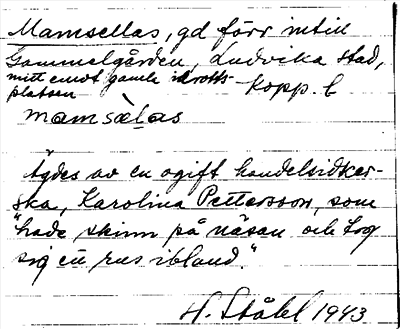 Mamsellas, gd förr intill
Gammelgården, Ludvika stad,
mitt emot gamla idrotts-
platsen Kopp. l
mamsèlas
Ägdes av en ogift handelsidker-
ska, Karolina Pettersson, som
"hade skinn på näsan och tog
sig en rus ibland."
H. Ståhl 1943